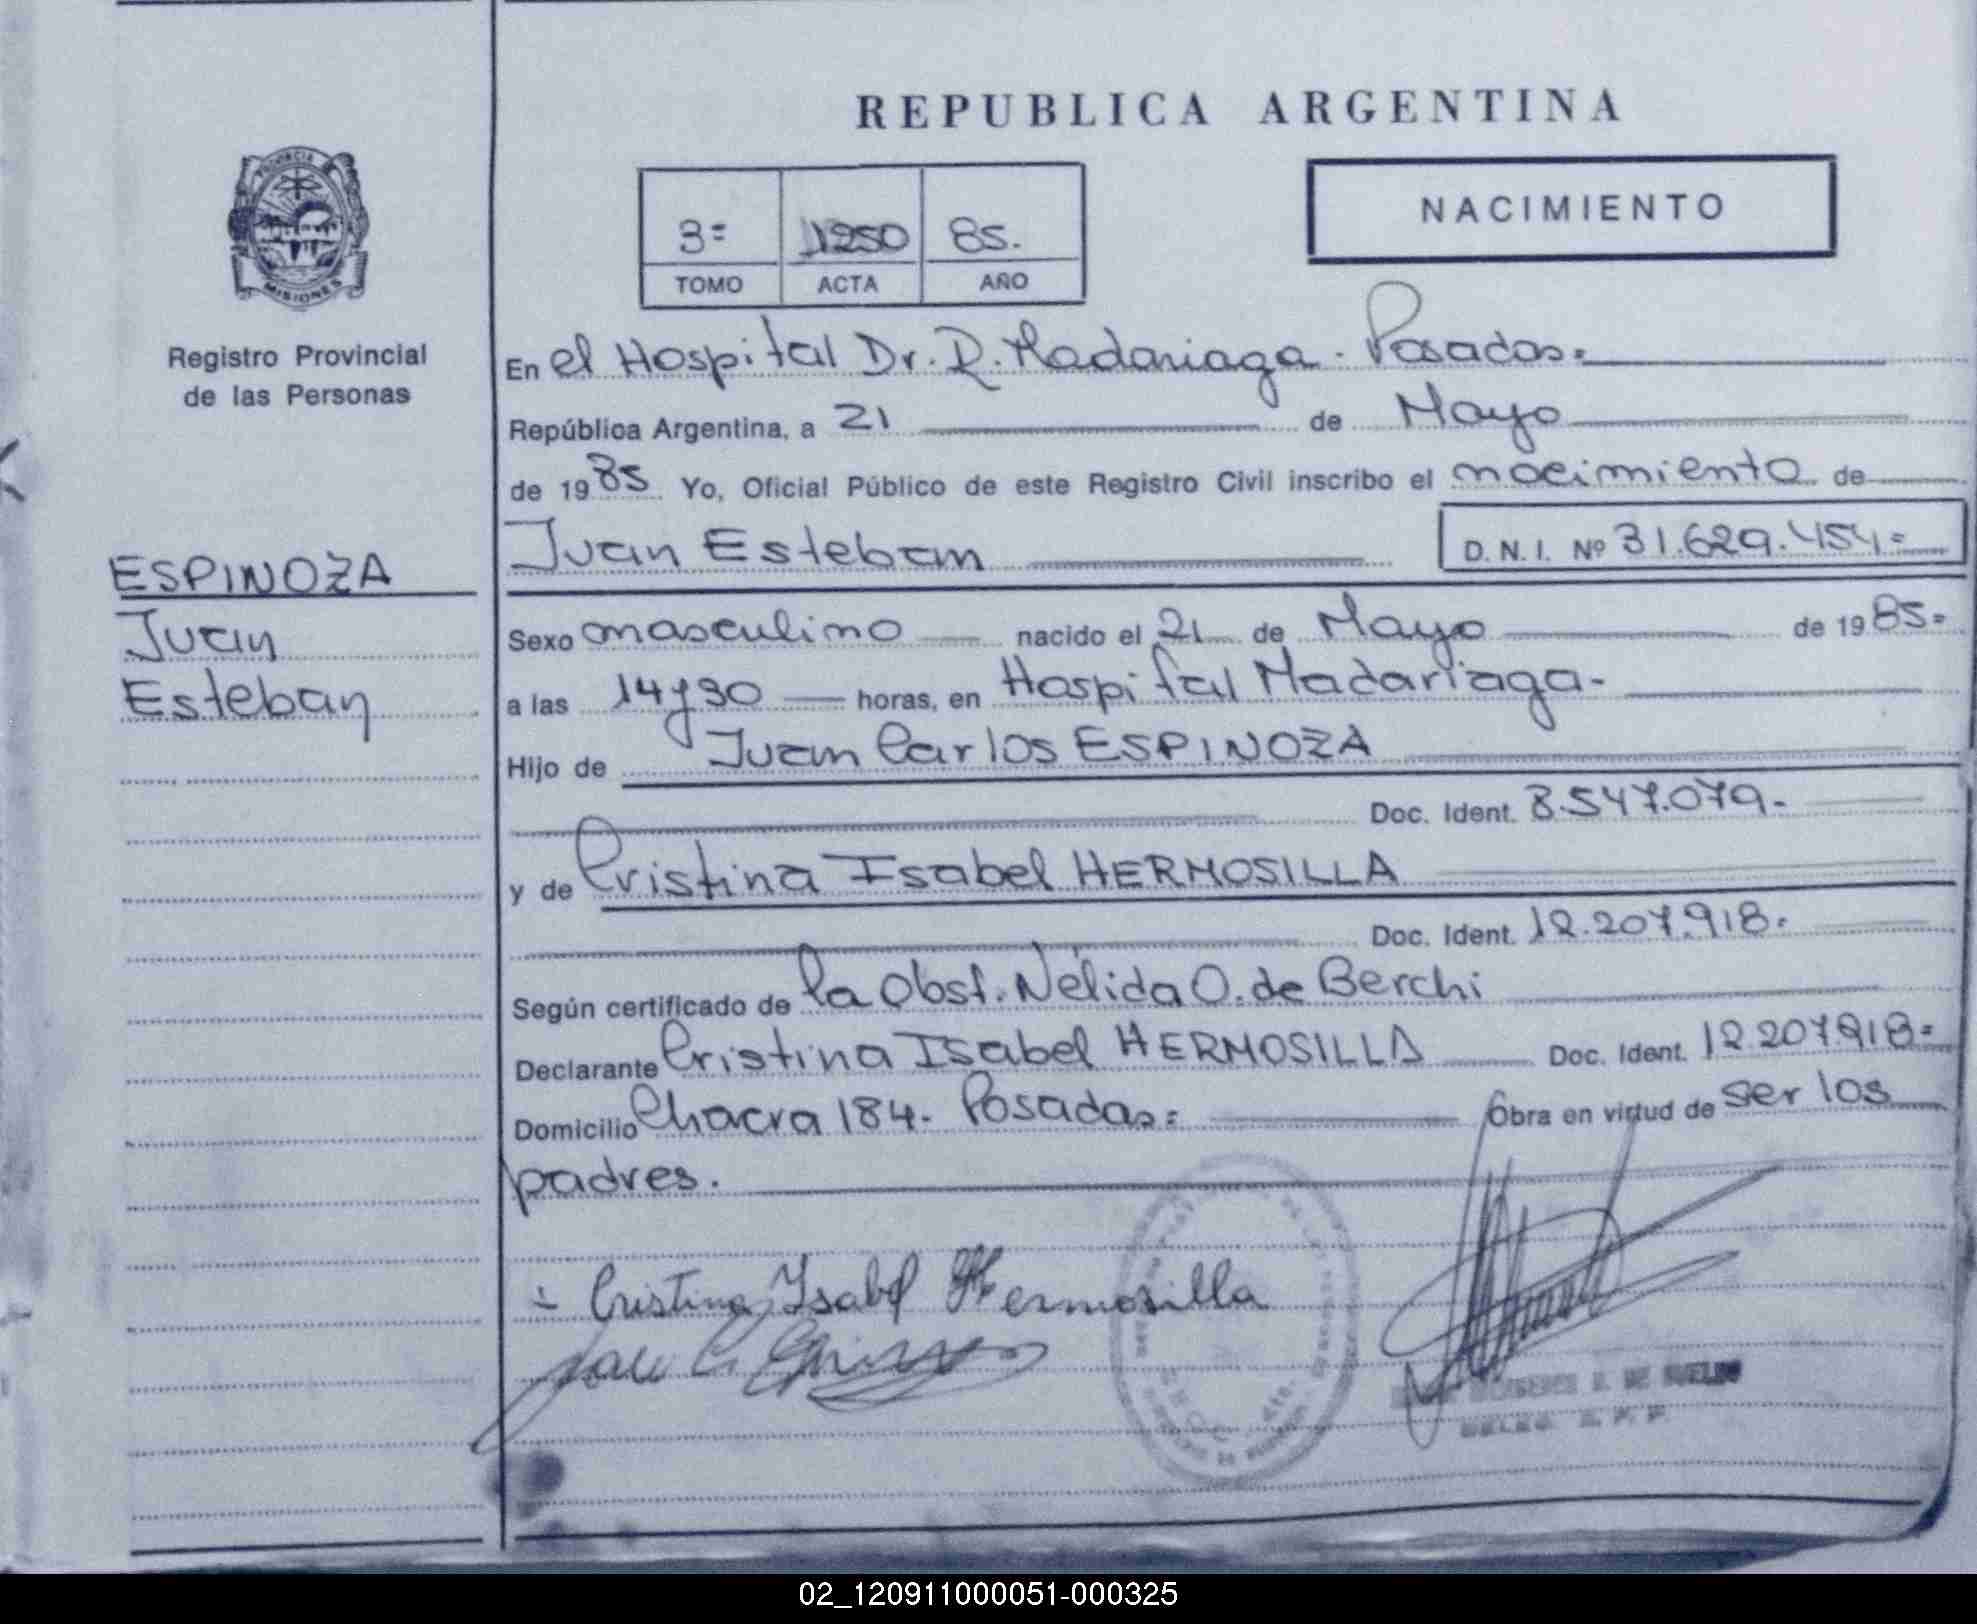 REPUBLICA ARGENTINA
PROVINCIA
MISIONES
Registro Provincial
de las Personas
ESPINOZA
Juan
Esteban
3= 1250 85.
TOMO ACTA AÑO
NACIMIENTO
En el Hospital Dr. R. Madariaga - Posadas.
República Argentina, a 21 de Mayo
de 1985 Yo, Oficial Público de este Registro Civil inscribo el nacimiento de
Juan Esteban D. N. I. Nº 31.629.454=
Sexo masculino nacido el 21 de Mayo de 1985=
a las 14y30 horas, en Hospital Madariaga-
Hijo de Juan Carlos ESPINOZA
Doc. Ident. 8.547.079-
y de Cristina Isabel HERMOSILLA
Doc. Ident. 12.207.918-
Según certificado de la Obst. Nélida O. de Berchi
Declarante Cristina Isabel HERMOSILLA Doc. Ident. 12.207.918=
Domicilio Chacra 184- Posadas= Obra en virtud de ser los
padres.
Cristina Isabel Hermosilla
02_120911000051-000325